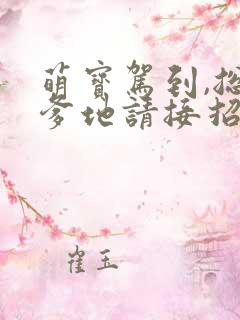 萌寶駕到,總
爹地請接招
崔玉